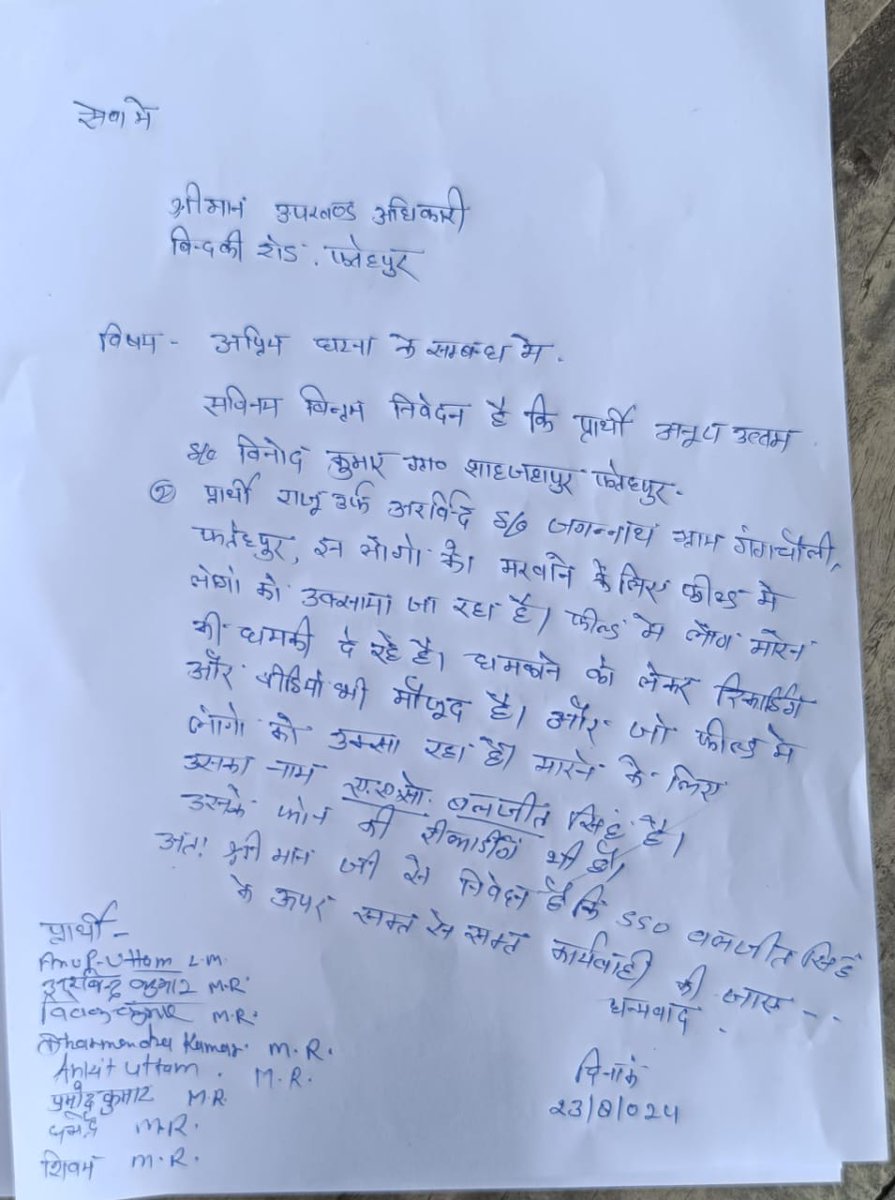 सेवा मे
श्रीमानं उपखण्ड अधिकारी
बिन्दकी रोड. फतेहपुर
विषय - अप्रिय घटना के सम्बंध मे.
सविनय विनम्र निवेदन है कि प्रार्थी अनूप उत्तम
S/o विनोद कुमार ग्रा० शाहजहापुर फतेहपुर.
② प्रार्थी राजू उर्फ अरविन्द S/o जगन्नाथ ग्राम गंगाचौली,
फतेहपुर, इन लोगो को मरवाने के लिए फील्ड मे
लोगो को उकसाया जा रहा है। फील्ड मे लोग मारने
की धमकी दे रहे है। धमकाने को लेकर रिकार्डिंग
और वीडियो भी मौजूद है। और जो फील्ड मे
लोगो को उकसा रहा है। मारने के लिए
उसका नाम एस.एस.ओ. बलजीत सिंह है।
उसके फोन की रीकार्डिंग भी है।
अतः श्री मान जी से निवेदन है कि SSO बलजीत सिंह
के ऊपर सख्त से सख्त कार्यवाही की जाए --.
धन्यवाद .
प्रार्थी -
Anup Uttam L.M.
अरविन्द कुमार M.R.
विवेक कुमार M.R.
Dharmendra Kumar. M.R.
Ankit Uttam . M.R.
प्रमोद कुमार M.R.
धर्मेंद्र M.R.
शिवम M.R.
दिनांक
23/8/024